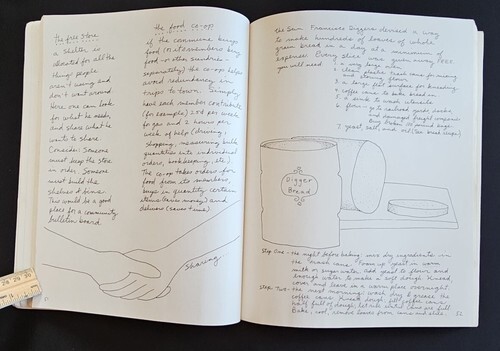 the free Store
a shelter is
allocated for all the
things people
aren't using and
don't want around.
Here one can look
for what he needs,
and share what he
wants to share.
Consider: Someone
must keep the store
in order. Someone
must build the
shelves & bins.
This would be a good
place for a community
bulletin board.
the food co-op
if the commune buys
food (or its members bring
food or other sundries
separately) the co-op helps
avoid redundancy in
trips to town. Simply
have each member contribute
(for example) 25¢ per week
for gas and 2 hours per
week of help (driving,
shopping, measuring bulk
quantities into individual
orders, bookkeeping, etc.)
The co-op takes orders for
food from its members,
buys in quantity certain
items (saves money) and
delivers (saves time).
Sharing
51
the San Francisco Diggers devised a way
to make hundreds of loaves of whole
grain bread in a day at a minimum of
expense. Every slice was given away, FREE
you will need
plastic trash cans for mixing
and storing flour.
a large flat surface for kneading.
coffee cans to bake bread in.
sink to wash utensils
flour - go to railroad yards, docks,
and damaged freight companies
for 100 pound bags.
7. yeast, salt, and oil
Digger
Bread
Step One - the night before baking mix dry ingredients in
the trash cans. Proof up yeast in warm
milk or sugar water. Add yeast to flour and
enough water to make a soft dough. Knead,
cover and leave in a warm place overnight.
Step Two - the next morning: wash, dry & grease the
coffee cans. Knead dough, fill coffee cans
half full of dough, let rise until cans are full.
Bake, cool, remove loaves from cans and slice.
52